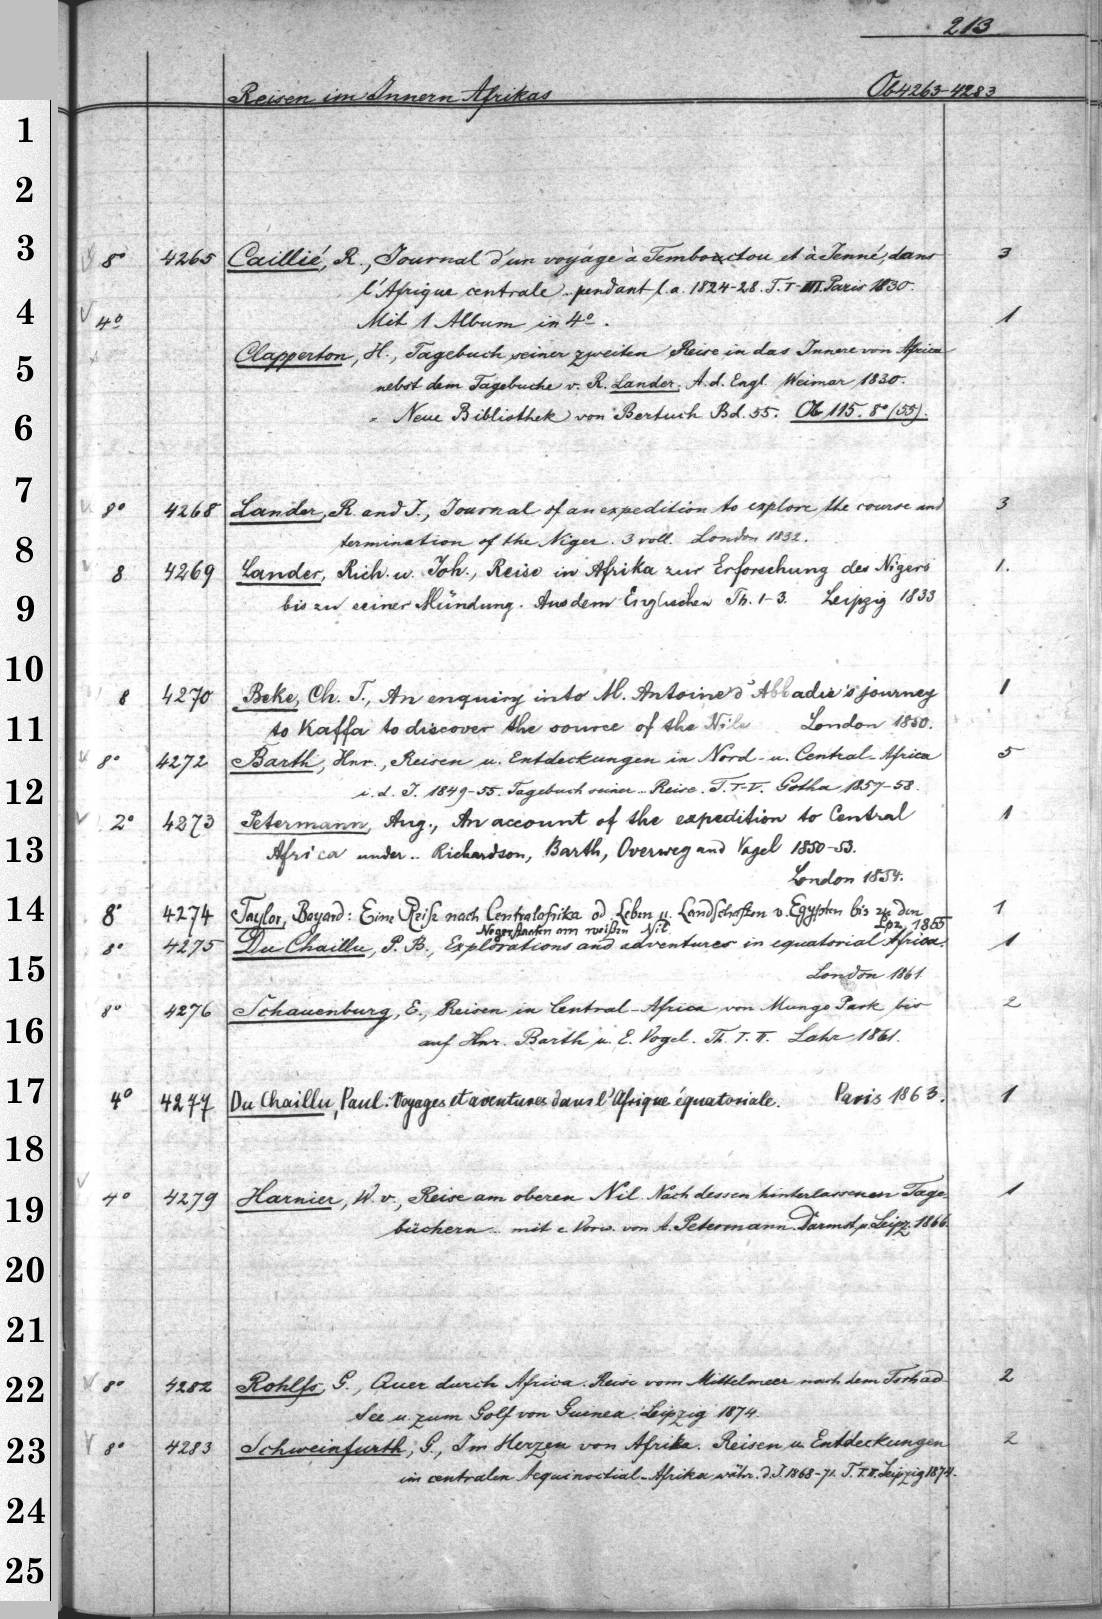 213
Reisen im Innern Afrikas Ob 4263-4283
1
2
3
8° 4265 Caillié, R., Journal d'un voyage à Tembouctou et à Jenné, dans 3
l'Afrique centrale .. pendant l. a. 1824-28. T. I-III. Paris 1830.
4
4° Mit 1 Album in 4°. 1
5
Clapperton, H., Tagebuch seiner zweiten Reise in das Innere von Africa
nebst dem Tagebuche v. R. Lander. A. d. Engl. Weimar 1830.
6
= Neue Bibliothek von Bertuch Bd. 55. Ob 115. 8° (55).
7
8° 4268 Lander, R. and J., Journal of an expedition to explore the course and 3
8
termination of the Niger. 3 voll. London 1832.
8 4269 Lander, Rich. u. Joh., Reise in Afrika zur Erforschung des Nigers 1.
9
bis zu seiner Mündung. Aus dem Englischen Th. 1-3. Leipzig 1833
10
8 4270 Beke, Ch. T., An enquiry into M. Antoine d'Abbadie's journey 1
11
to Kaffa to discover the source of the Nile London 1850.
8° 4272 Barth, Hnr., Reisen u. Entdeckungen in Nord- u. Central-Africa 5
12
i. d. J. 1849-55. Tagebuch seiner .. Reise. T. I-V. Gotha 1857-58.
2° 4273 Petermann, Aug., An account of the expedition to Central 1
13
Africa under .. Richardson, Barth, Overweg and Vogel 1850-53.
London 1854.
14
8° 4274 Taylor, Bayard: Eine Reise nach Centralafrika od. Leben u. Landschaften v. Egypten bis zu den 1
Negerstaaten am weißen Nil. Lpz. 1855
8° 4275 Du Chaillu, P. B., Explorations and adventures in equatorial Africa. 1
15
London 1861.
8° 4276 Schauenburg, E., Reisen in Central-Africa von Mungo Park bis 2
16
auf Hnr. Barth u. E. Vogel. Th. I. II. Lahr 1861.
17
4° 4277 Du Chaillu, Paul. Voyages et aventures dans l'Afrique équatoriale. Paris 1863. 1
18
4° 4279 Harnier, W. v., Reise am oberen Nil. Nach dessen hinterlassenen Tage- 1
19
büchern .. mit e. Vorw. von A. Petermann. Darmst. u. Leipz. 1866.
20
21
22
8° 4282 Rohlfs, G., Quer durch Africa. Reise vom Mittelmeer nach dem Tschad- 2
See u. zum Golf von Guinea. Leipzig 1874.
23
8° 4283 Schweinfurth, G., Im Herzen von Afrika. Reisen u. Entdeckungen 2
im centralen Aequinoctial-Afrika währ. d. J. 1868-71. T. I. II. Leipzig 1874.
24
25